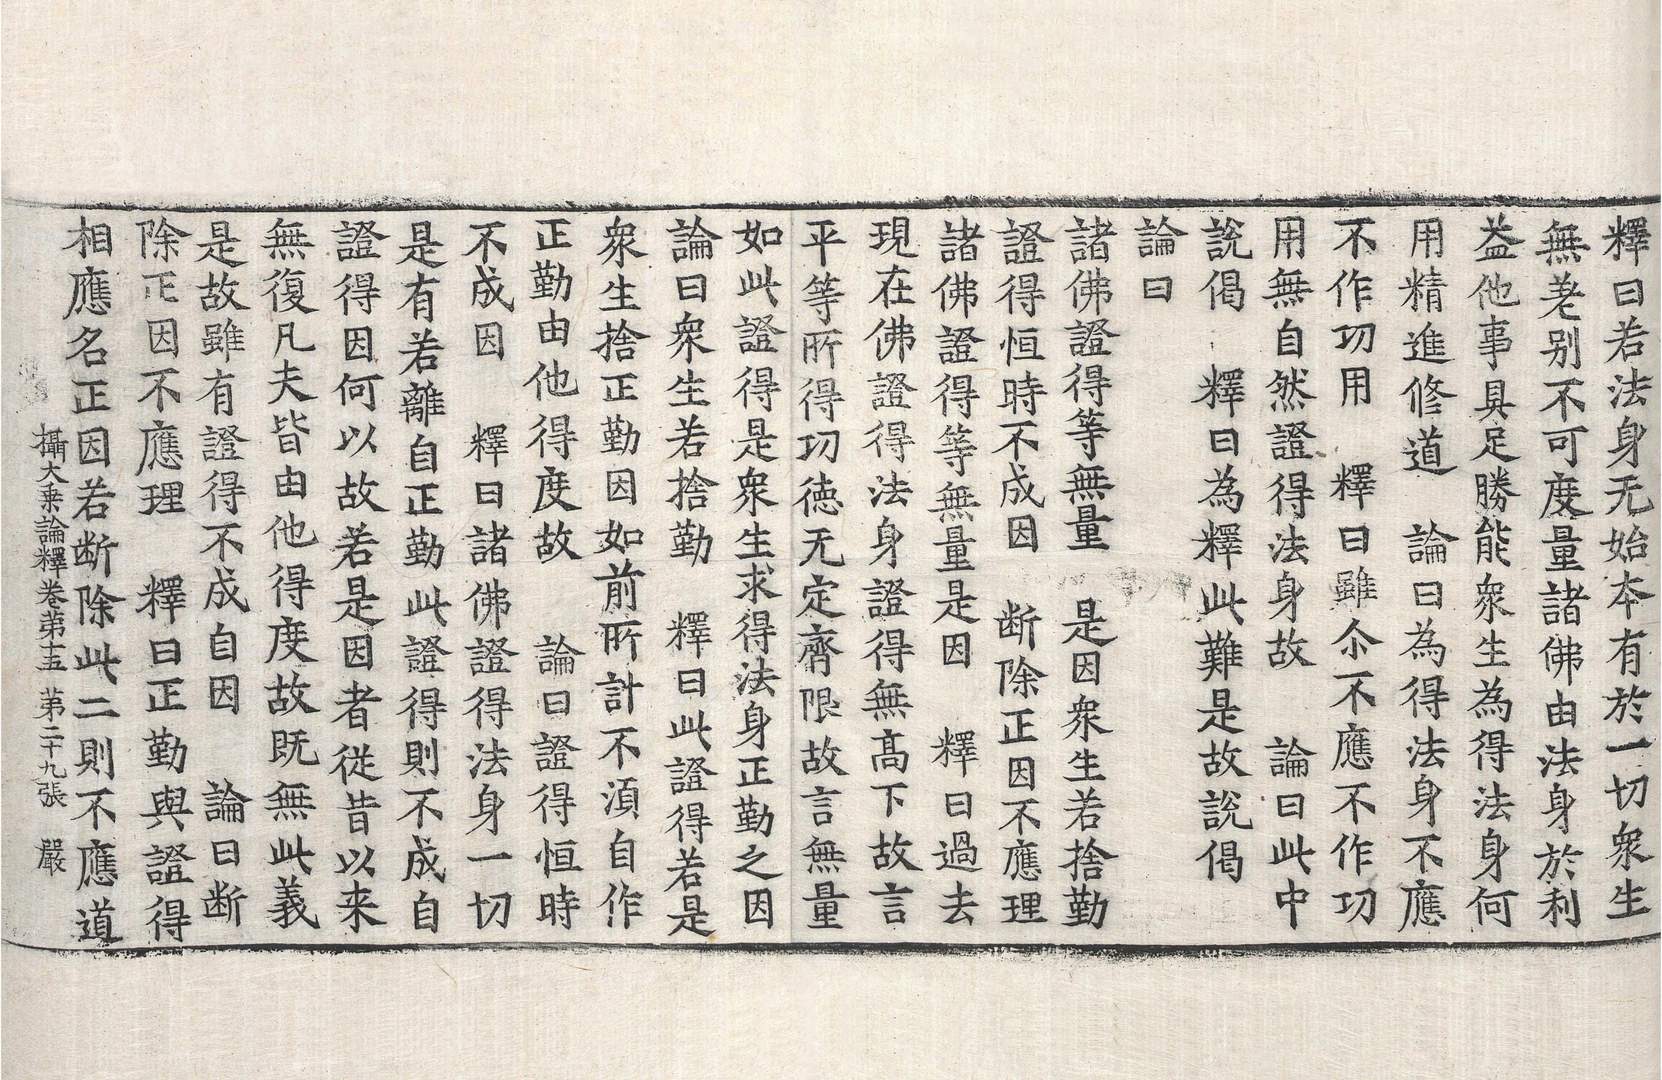 釋曰若法身无始本有於一切衆生
無差别不可度量諸佛由法身於利
益他事具足勝能衆生為得法身何
用精進修道　論曰為得法身不應
不作功用　釋曰雖尒不應不作功
用無自然證得法身故　論曰此中
說偈　釋曰為釋此難是故說偈
論曰
諸佛證得等無量　是因衆生若捨勤
證得恒時不成因　断除正因不應理
諸佛證得等無量是因　釋曰過去
現在佛證得法身證得無髙下故言
平等所得功徳无定齊限故言無量
如此證得是衆生求得法身正勤之因
論曰衆生若捨勤　釋曰此證得若是
衆生捨正勤因如前所計不湏自作
正勤由他得度故　論曰證得恒時
不成因　釋曰諸佛證得法身一切
是有若離自正勤此證得則不成自
證得因何以故若是因者従昔以来
無復凡夫皆由他得度故既無此義
是故雖有證得不成自因　論曰断
除正因不應理　釋曰正勤與證得
相應名正因若断除此二則不應道
攝大乗論釋卷苐十五　苐二十九張　嚴